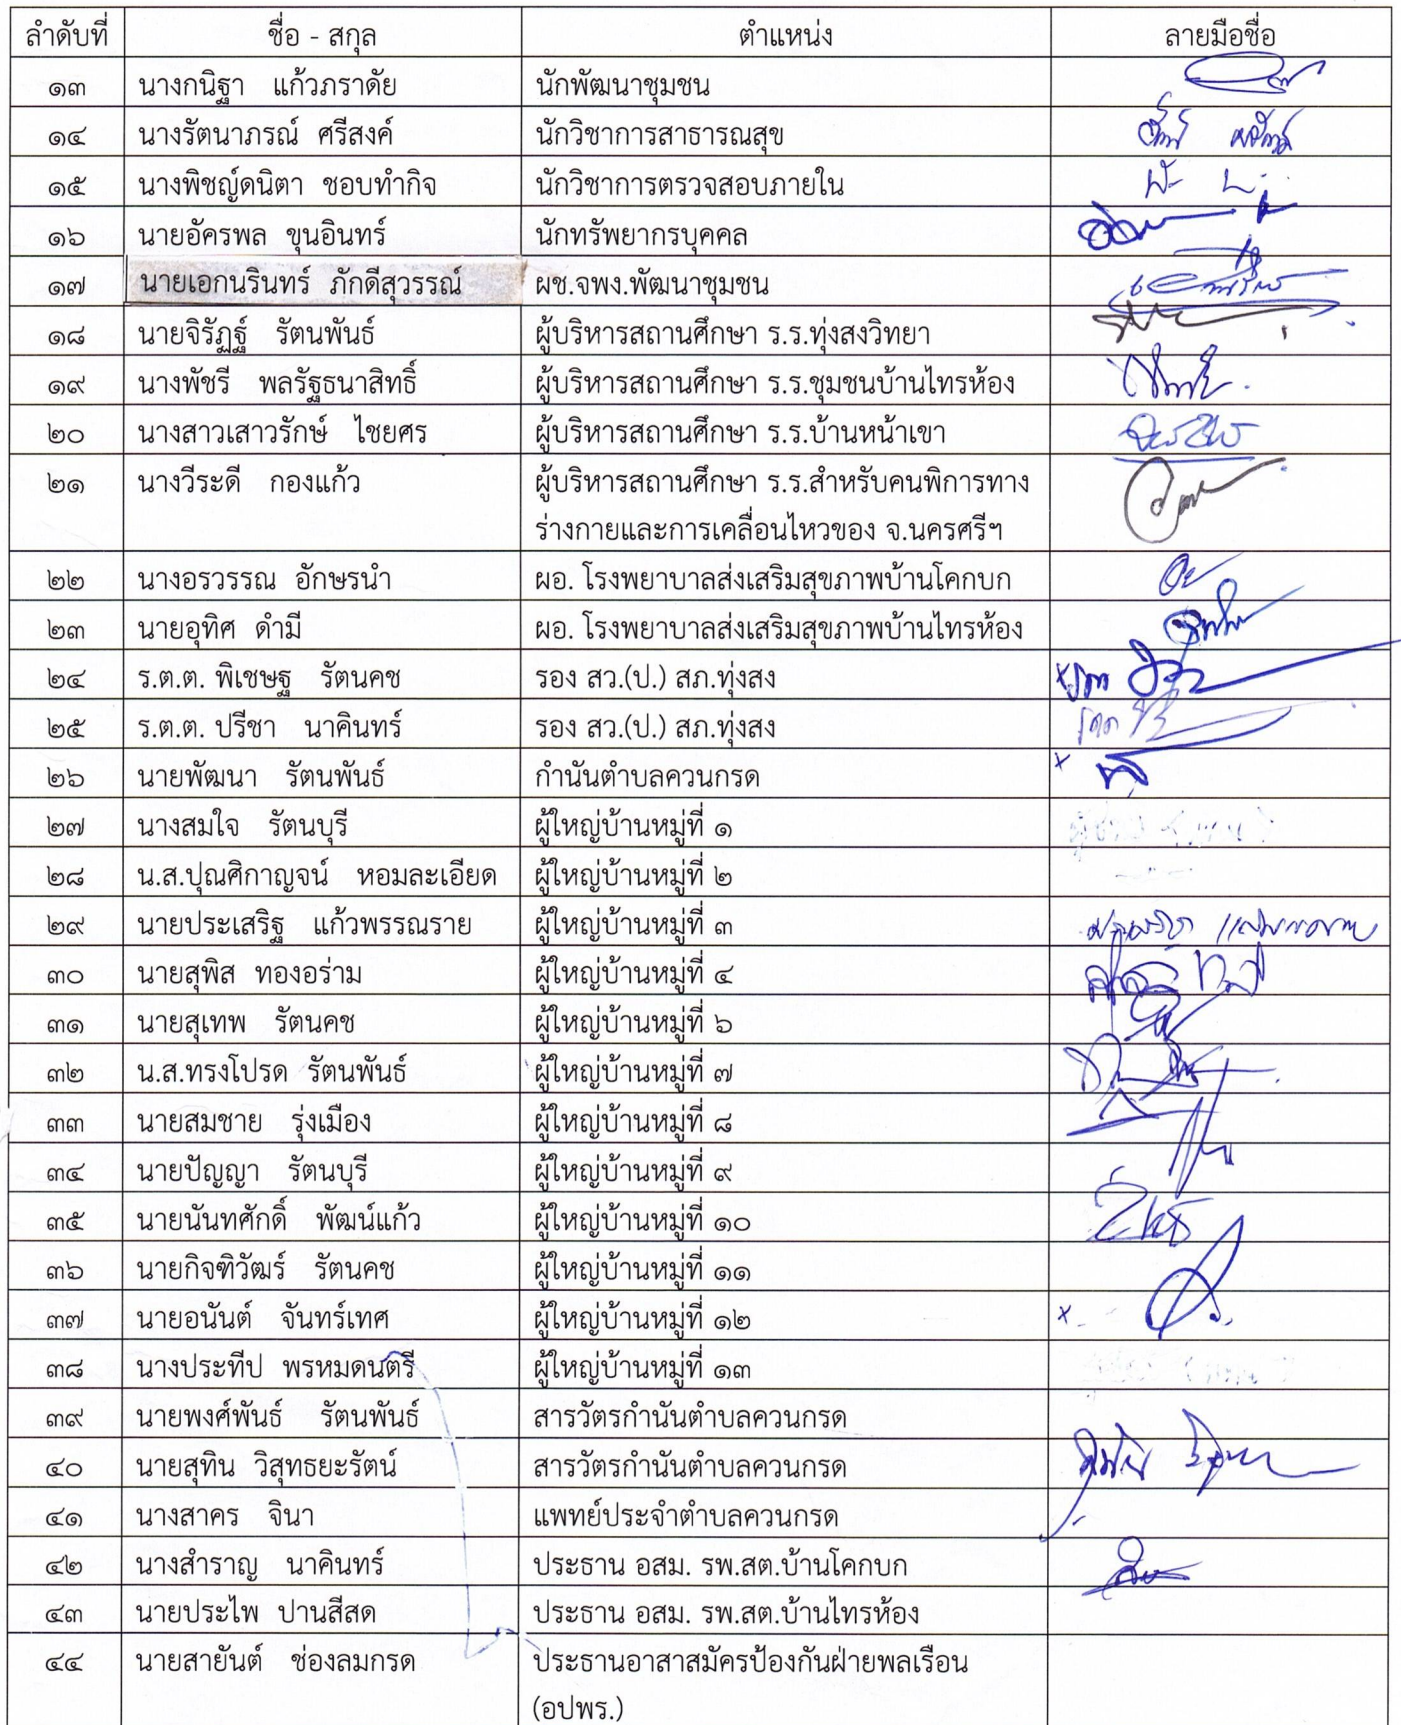 ลำดับที่ ชื่อ - สกุล ตำแหน่ง ลายมือชื่อ
๑๓ นางกนิฐา แก้วภราดัย นักพัฒนาชุมชน
๑๔ นางรัตนาภรณ์ ศรีสงค์ นักวิชาการสาธารณสุข
๑๕ นางพิชญ์ดนิตา ชอบทำกิจ นักวิชาการตรวจสอบภายใน
๑๖ นายอัครพล ขุนอินทร์ นักทรัพยากรบุคคล
๑๗ นายเอกนรินทร์ ภักดีสุวรรณ์ ผช.จพง.พัฒนาชุมชน
๑๘ นายจิรัฏฐ์ รัตนพันธ์ ผู้บริหารสถานศึกษา ร.ร.ทุ่งสงวิทยา
๑๙ นางพัชรี พลรัฐธนาสิทธิ์ ผู้บริหารสถานศึกษา ร.ร.ชุมชนบ้านไทรห้อง
๒๐ นางสาวเสาวรักษ์ ไชยศร ผู้บริหารสถานศึกษา ร.ร.บ้านหน้าเขา
๒๑ นางวีระดี กองแก้ว ผู้บริหารสถานศึกษา ร.ร.สำหรับคนพิการทาง
ร่างกายและการเคลื่อนไหวของ จ.นครศรีฯ
๒๒ นางอรวรรณ อักษรนำ ผอ. โรงพยาบาลส่งเสริมสุขภาพบ้านโคกบก
๒๓ นายอุทิศ ดำมี ผอ. โรงพยาบาลส่งเสริมสุขภาพบ้านไทรห้อง
๒๔ ร.ต.ต. พิเชษฐ รัตนคช รอง สว.(ป.) สภ.ทุ่งสง
๒๕ ร.ต.ต. ปรีชา นาคินทร์ รอง สว.(ป.) สภ.ทุ่งสง
๒๖ นายพัฒนา รัตนพันธ์ กำนันตำบลควนกรด
๒๗ นางสมใจ รัตนบุรี ผู้ใหญ่บ้านหมู่ที่ ๑
๒๘ น.ส.ปุณศิกาญจน์ หอมละเอียด ผู้ใหญ่บ้านหมู่ที่ ๒
๒๙ นายประเสริฐ แก้วพรรณราย ผู้ใหญ่บ้านหมู่ที่ ๓
๓๐ นายสุพิส ทองอร่าม ผู้ใหญ่บ้านหมู่ที่ ๔
๓๑ นายสุเทพ รัตนคช ผู้ใหญ่บ้านหมู่ที่ ๖
๓๒ น.ส.ทรงโปรด รัตนพันธ์ ผู้ใหญ่บ้านหมู่ที่ ๗
๓๓ นายสมชาย รุ่งเมือง ผู้ใหญ่บ้านหมู่ที่ ๘
๓๔ นายปัญญา รัตนบุรี ผู้ใหญ่บ้านหมู่ที่ ๙
๓๕ นายนันทศักดิ์ พัฒน์แก้ว ผู้ใหญ่บ้านหมู่ที่ ๑๐
๓๖ นายกิจฑิวัฒร์ รัตนคช ผู้ใหญ่บ้านหมู่ที่ ๑๑
๓๗ นายอนันต์ จันทร์เทศ ผู้ใหญ่บ้านหมู่ที่ ๑๒
๓๘ นางประทีป พรหมดนตรี ผู้ใหญ่บ้านหมู่ที่ ๑๓
๓๙ นายพงศ์พันธ์ รัตนพันธ์ สารวัตรกำนันตำบลควนกรด
๔๐ นายสุทิน วิสุทธยะรัตน์ สารวัตรกำนันตำบลควนกรด
๔๑ นางสาคร จินา แพทย์ประจำตำบลควนกรด
๔๒ นางสำราญ นาคินทร์ ประธาน อสม. รพ.สต.บ้านโคกบก
๔๓ นายประไพ ปานสีสด ประธาน อสม. รพ.สต.บ้านไทรห้อง
๔๔ นายสายันต์ ช่องลมกรด ประธานอาสาสมัครป้องกันฝ่ายพลเรือน
(อปพร.)